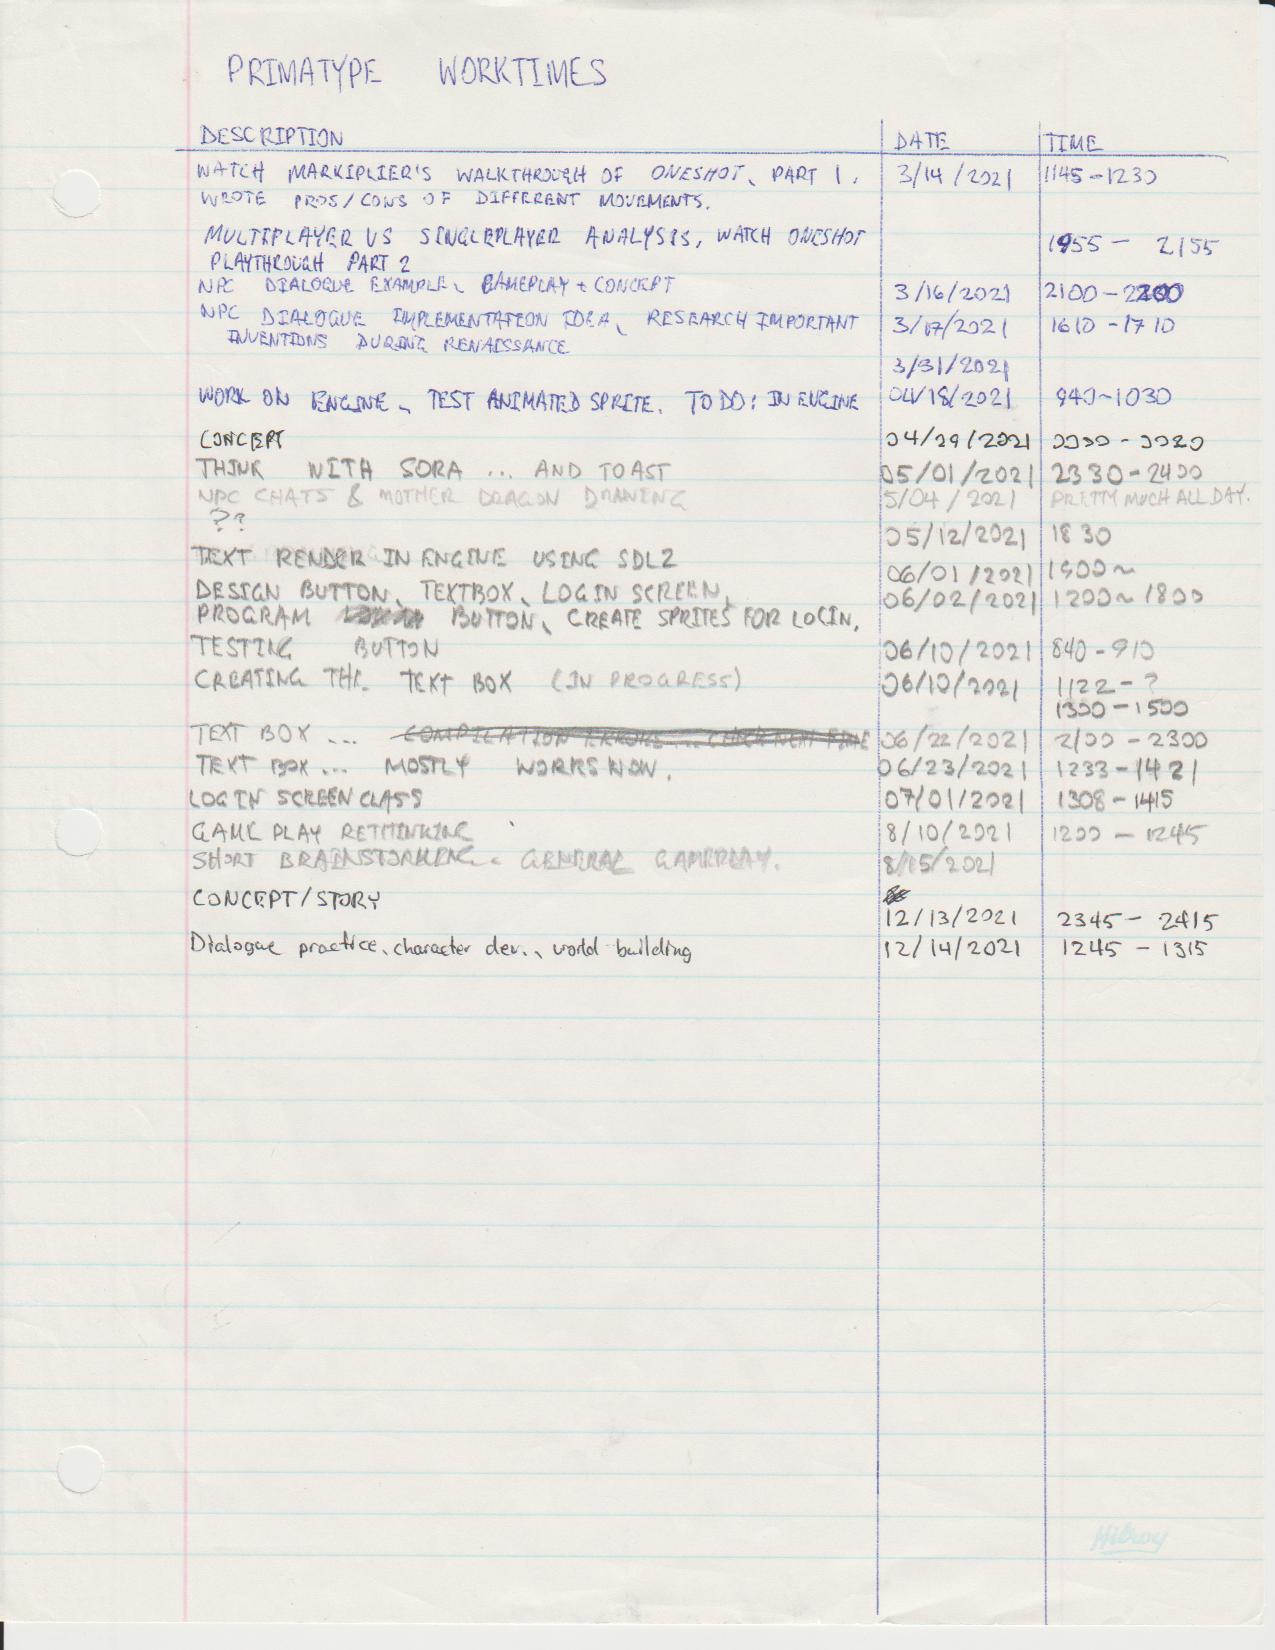 PRIMATYPE WORKTIMES
DESCRIPTION DATE TIME
WATCH MARKIPLIER'S WALKTHROUGH OF ONESHOT, PART 1. 3/14/2021 1145-1230
WROTE PROS/CONS OF DIFFERENT MOVEMENTS.
MULTIPLAYER VS SINGLEPLAYER ANALYSIS, WATCH ONESHOT 1955- 2155
PLAYTHROUGH PART 2
NPC DIALOGUE EXAMPLE, GAMEPLAY + CONCEPT 3/16/2021 2100-2200
NPC DIALOGUE IMPLEMENTATION IDEA, RESEARCH IMPORTANT 3/17/2021 1610-1710
INVENTIONS DURING RENAISSANCE
3/31/2021
WORK ON ENGINE, TEST ANIMATED SPRITE. TO DO: IN ENGINE 04/18/2021 940~1030
CONCEPT 04/29/2021 0000-0020
THINK WITH SORA ... AND TOAST 05/01/2021 2330-2400
NPC CHATS & MOTHER DRAGON DRAWING 5/04/2021 PRETTY MUCH ALL DAY.
?? 05/12/2021 1830
TEXT RENDER IN ENGINE USING SDL2 06/01/2021 1900~
DESIGN BUTTON, TEXTBOX, LOGIN SCREEN, 06/02/2021 1200~1800
PROGRAM BUTTON, CREATE SPRITES FOR LOGIN,
TESTING BUTTON 06/10/2021 840-910
CREATING THE TEXT BOX (IN PROGRESS) 06/10/2021 1122-?
1300-1500
TEXT BOX ... COMPILATION ERRORS ... CHECK NEXT TIME 06/22/2021 2100-2300
TEXT BOX ... MOSTLY WORKS NOW. 06/23/2021 1233-1421
LOGIN SCREEN CLASS 07/01/2021 1308-1415
GAME PLAY RETHINKING 8/10/2021 1200-1245
SHORT BRAINSTORMING. GENERAL GAMEPLAY. 8/15/2021
CONCEPT/STORY
12/13/2021 2345-2415
Dialogue practice, character dev., world building 12/14/2021 1245-1315
Hilroy